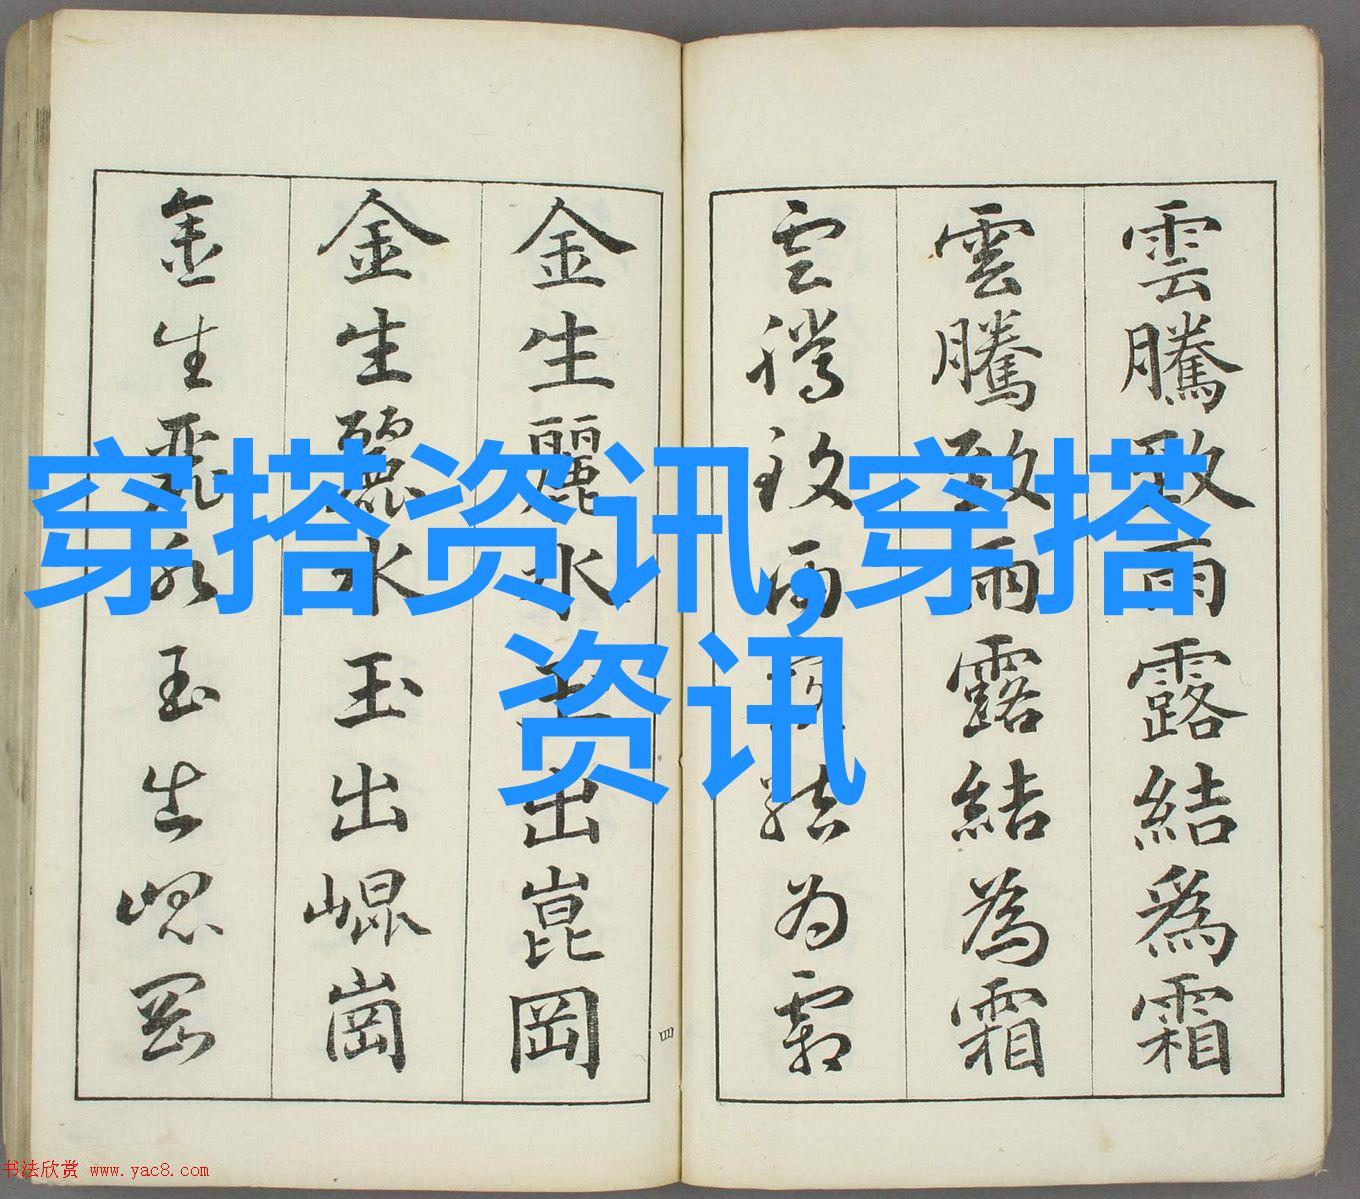 穿搭资讯,穿搭
资讯
雲騰致雨露結爲霜
雲騰致雨露結為霜
雲騰致雨露結為霜
四
金生麗水玉出崑岡
金生麗水玉出崐崗
金生麗水玉出崐岡
书法欣赏 www.yac8.com